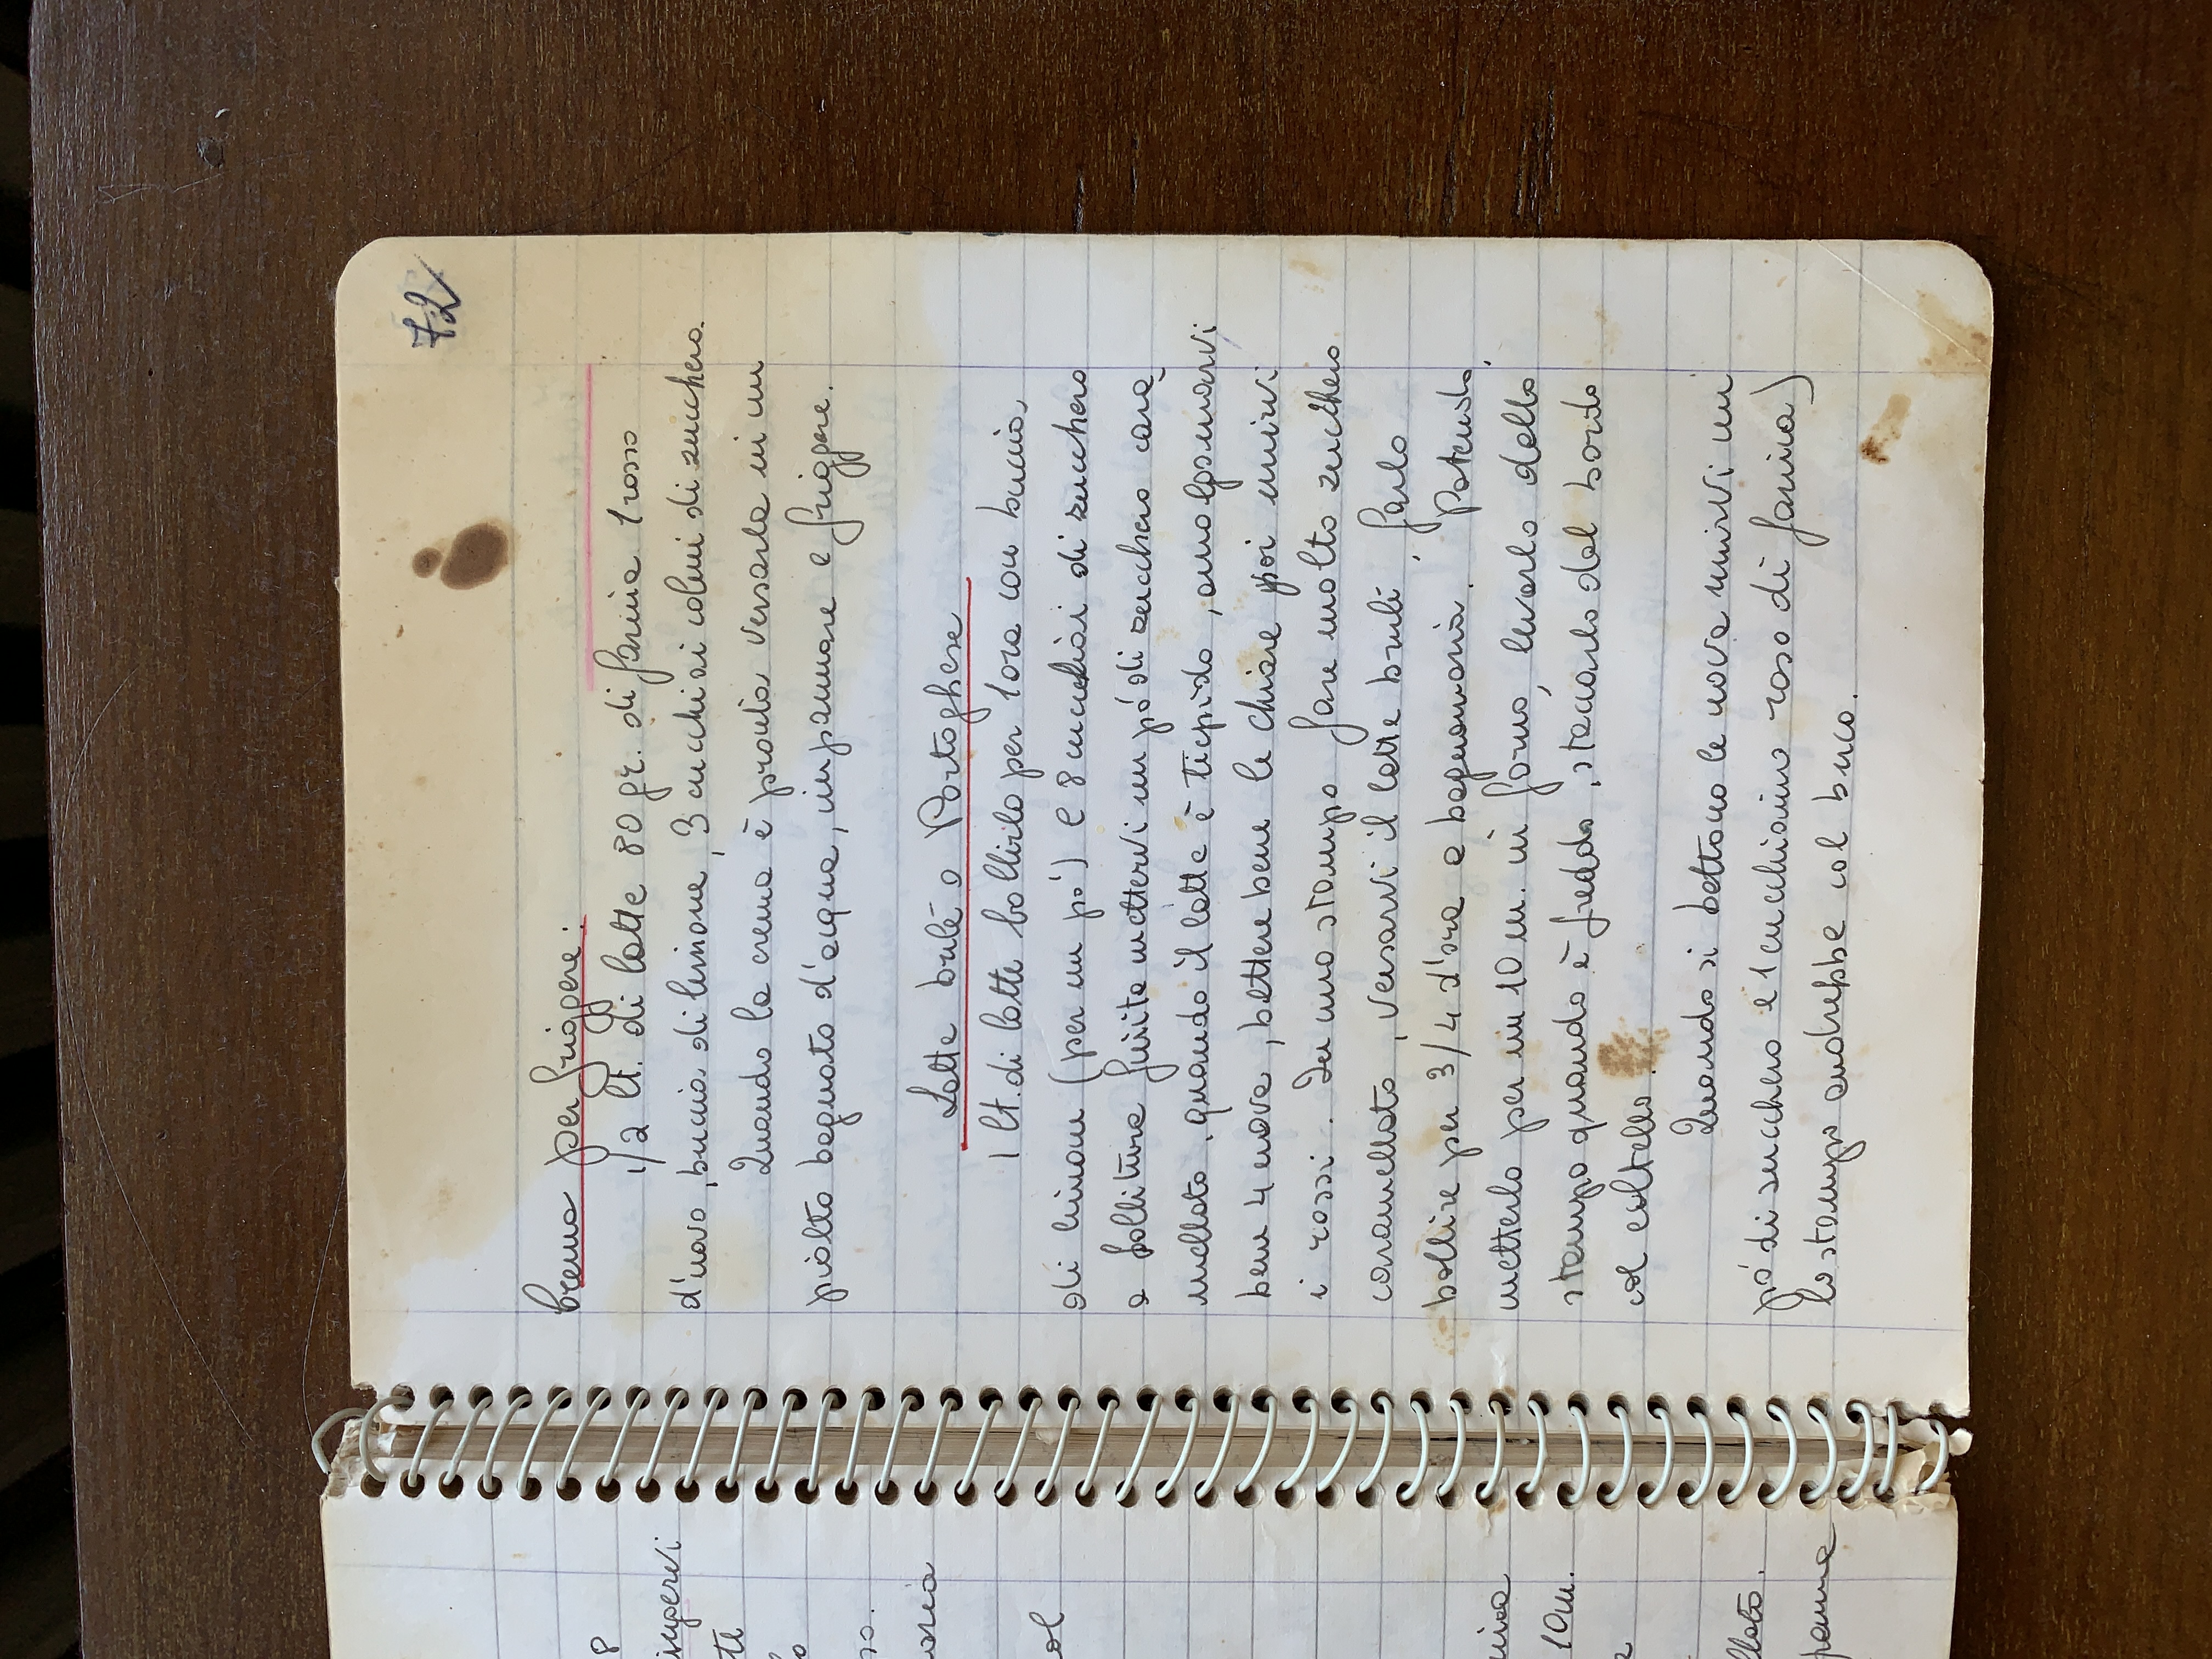 8
ingervi
te
lo
so.
maria
col
10 m.
llato.
panna
72
Crema per friggere:
1/2 lt. di latte 80 gr. di farina 1 rosso
d'uovo, buccia di limone, 3 cucchiai colmi di zucchero.
Quando la crema è pronta versarla in un
piatto bagnato d'acqua, impannare e friggere.
Latte brulé o Portoghese
1 lt. di latte bollirlo per 1 ora con buccia
di limone (per un pó) e 8 cucchiai di zucchero
a bollitura finita mettervi un pó di zucchero cara_
mellato. quando il latte è tiepido, amalgamarvi
bene 4 uova, battere bene le chiare poi unirvi
i rossi. In uno stampo fare molto zucchero
caramellato, versarvi il latte brulé, farlo
bollire per 3/4 d'ora a bagnomaria. Potendo,
metterlo per un 10 m. in forno, levarlo dallo
stampo quando è freddo, staccarlo dal bordo
col coltello.
Quando si battono le uova unirvi un
pó di zucchero e 1 cucchiaino raso di farina)
lo stampo andrebbe col buco.